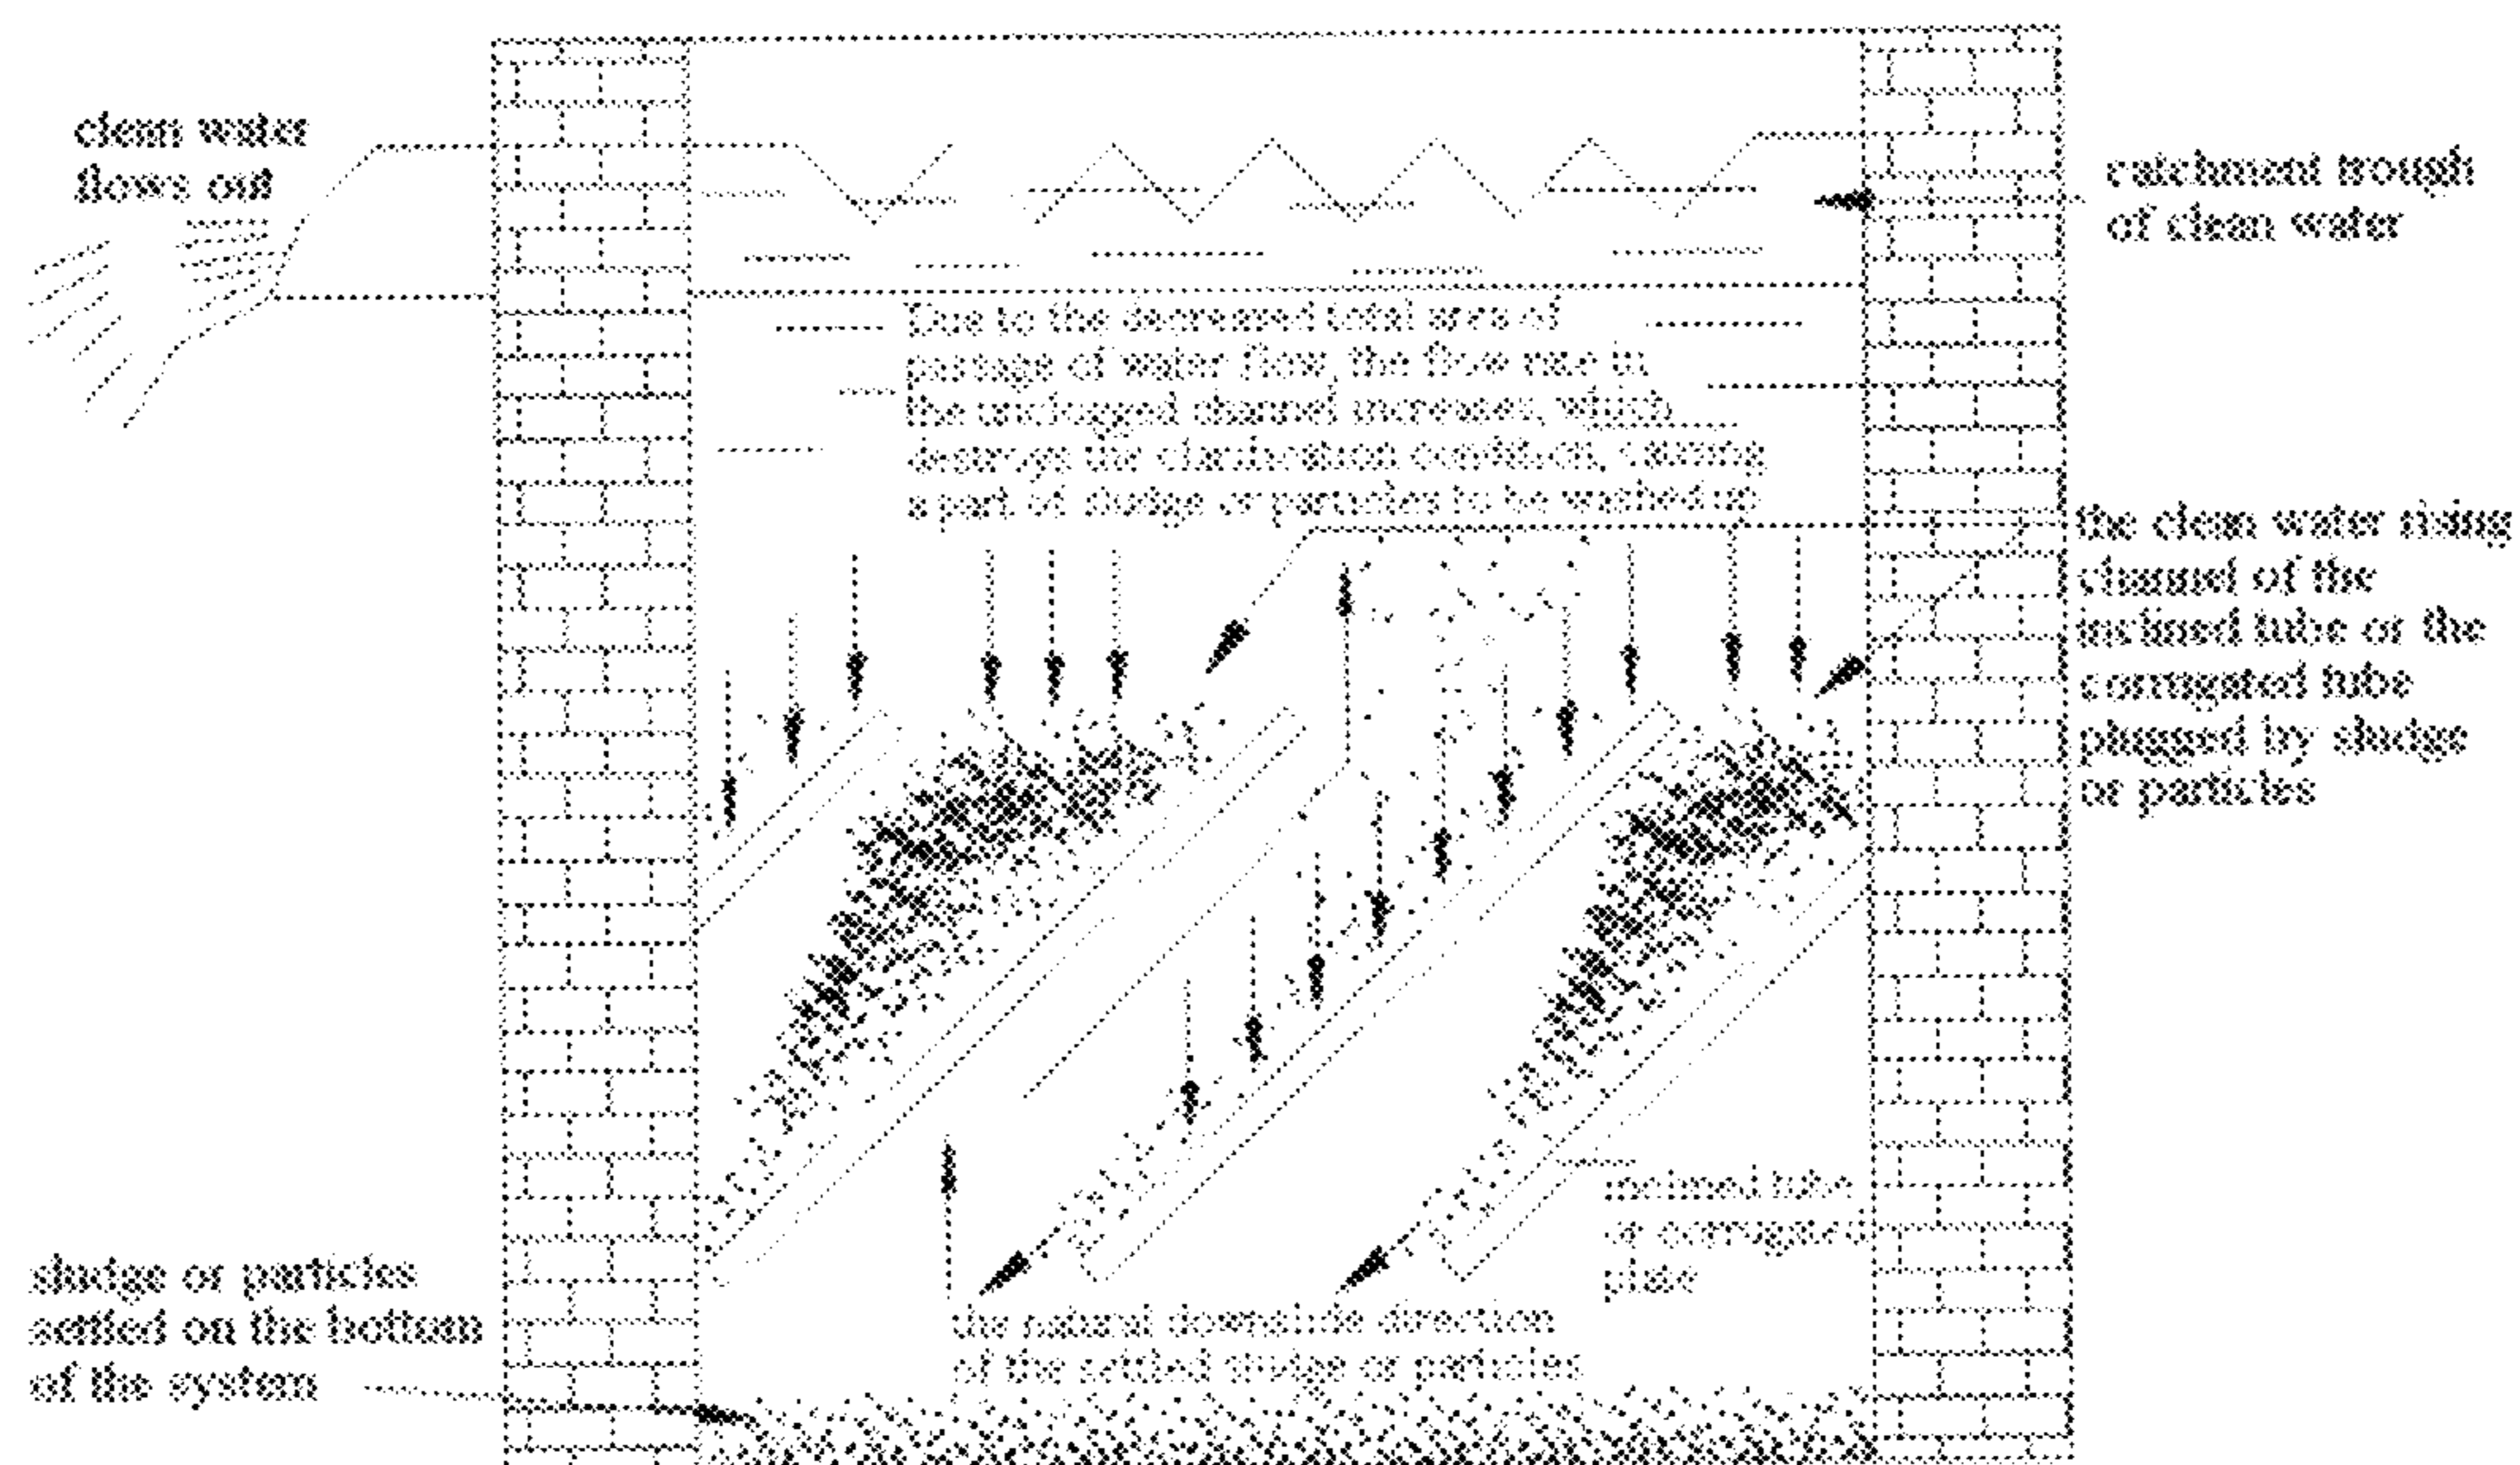 clean water
flows out
catchment trough
of clean water
Due to the decreased total area of
passage of water flow, the flow rate in
the unclogged channel increases, which
destroys the clarification condition, causing
a part of sludge or particles to be washed up
the clean water rising
channel of the
inclined tube or the
corrugated tube
plugged by sludge
or particles
inclined tube
or corrugated
plate
sludge or particles
settled on the bottom
of the system
the natural downslide direction
of the settled sludge or particles